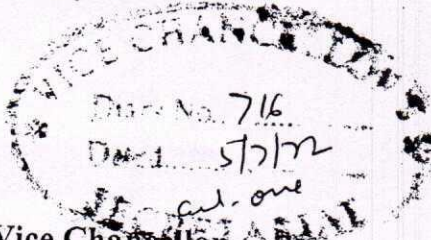 VICE CHANCELLOR'S
Diary No. 716
Dated 5/7/22
SECRETARIAT
Vice Chancellor